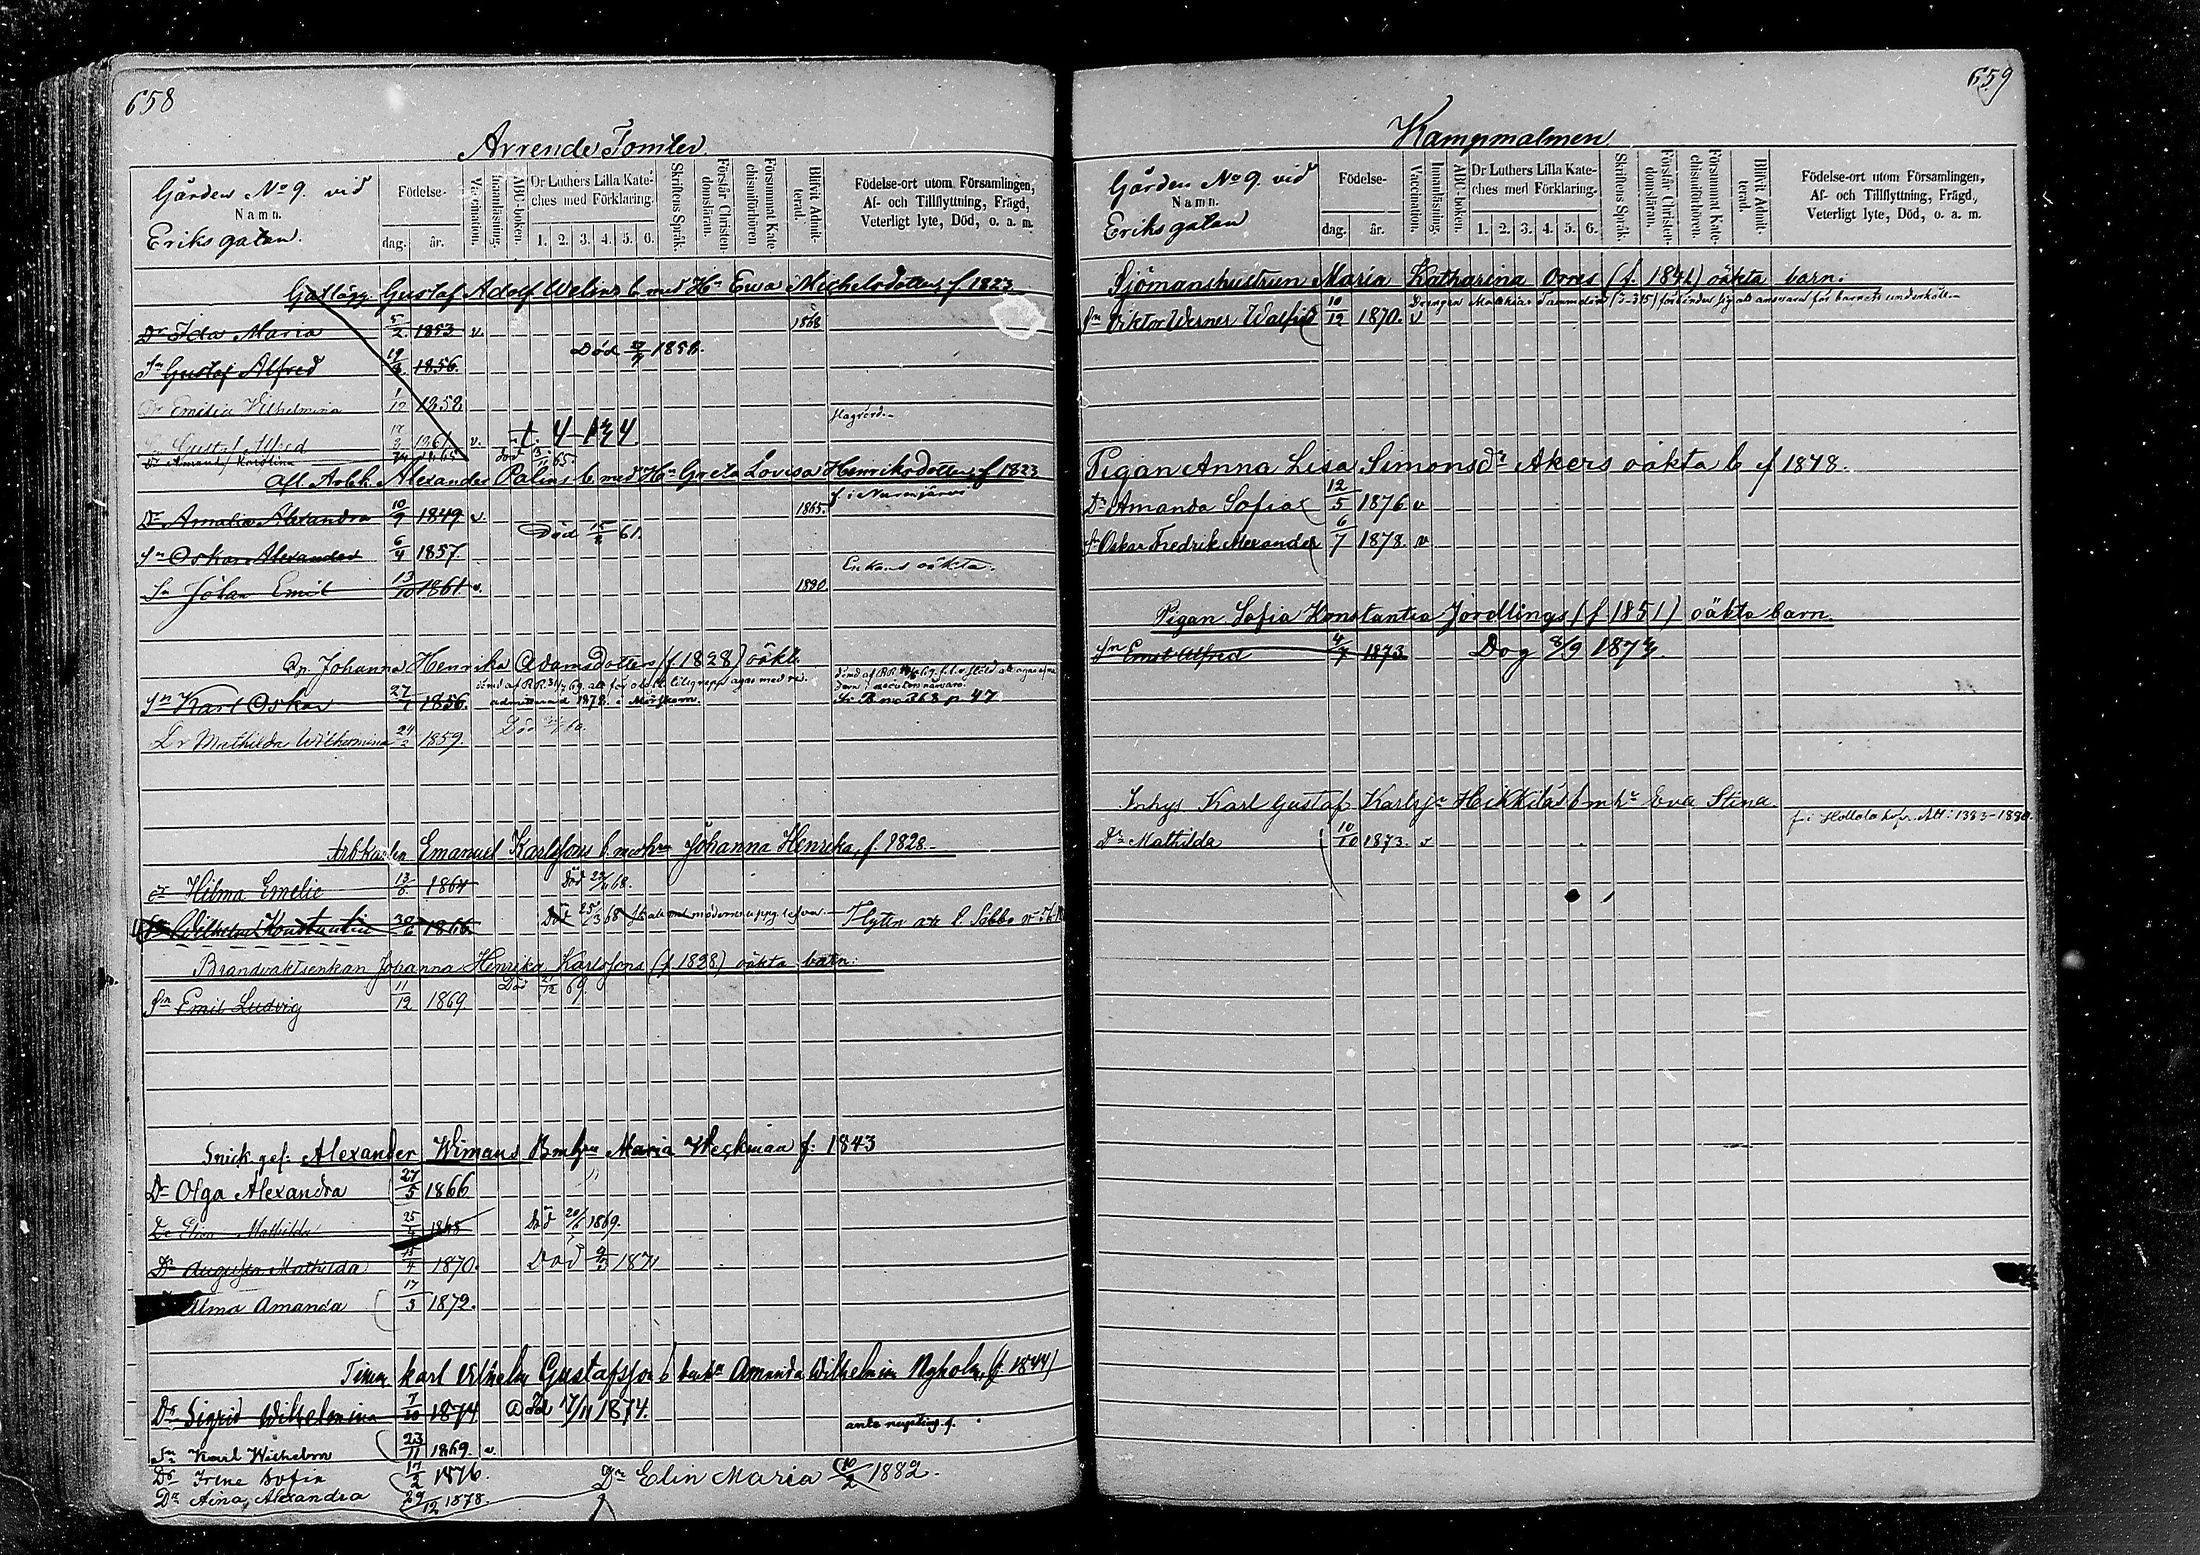 658
Arrende Tomter
Gården No 9. vid
Namn.
Eriksgatan.
Födelse-
dag. år.
Vaccination.
Innanläsning.
ABC-boken.
Dr Luthers Lilla Kate-
ches med Förklaring.
1. 2. 3. 4. 5. 6.
Skriftens Språk.
Förstår Christen-
domsläran.
Försummat Kate-
chismiförhören
Blifvit Admit-
terad.
Födelse-ort utom Församlingen,
Af- och Tillflyttning, Frägd,
Veterligt lyte, Död, o. a. m.
Gustaf Adolf Welins b. med Hu Ewa Michelsdotter, f 1823
Dr Ida Maria 5/2 1853 v. 1868
Sn Gustaf Alfred 19/3 1856. Död 1858.
Dr Emilia Vilhelmina 1/12 1858
Sn Gustaf Alfred 17/2 1861 v.
Dr Amanda Kristina 1865 död 65
Afl. Arbk. Alexander Palins b. med Hu Greta Lovisa Henriksdotter, f 1823
f i Nurmijärvi
Dr Amalia Alexandra 10/9 1849 v. 1865.
Sn Oskar Alexander 6/4 1857. Död 61.
Enkans oäkta.
Sn Johan Emil 13/10 1861 v. 1880
Qp. Johanna Henrika Adamsdotters (f. 1828) oäkta
Sn Karl Oskar 27/1 1856. admitterad 1878. i Mörskom.
Dr Mathilda Wilhelmina 24/2 1859. Död 60.
Arbkarlen Emanuel Karlssons b. med hu Johanna Henrika, f. 1828.
dr Hilma Emelie 13/6 1864 Död 68.
Sn Wilhelm Konstantin 30/6 1866. Död 25/3 68
Brandvaktsenkan Johanna Henrika Karlssons (f. 1828) oäkta barn:
Sn Emil Ludvig 11/12 1869. Död 69.
Snick. ges: Alexander Wimans Bmhu Maria Weckman f: 1843
Dr Olga Alexandra 27/5 1866
Dr Elin Mathilda 25/4 1868 Död 1869.
Dr Augusta Mathilda 1870. Död 9/3 1871
Alma Amanda 17/3 1872.
Karl Vilhelm Gustafsson b Amanda Wilhelmina Nyholm (f. 1844)
Dr Sigrid Wilhelmina 7/10 1874 död 17/11 1874.
ante nupt.
Sn Karl Wilhelm 23/11 1869 v.
Dr Irene Sofia 17/2 1876.
Dr Elin Maria 10/2 1882.
Dr Aina Alexandra 29/12 1878.
659
Kampmalmen
Gården No 9. vid
Namn.
Eriksgatan
Födelse-
dag. år.
Vaccination.
Innanläsning.
ABC-boken.
Dr Luthers Lilla Kate-
ches med Förklaring.
1. 2. 3. 4. 5. 6.
Skriftens Språk.
Förstår Christen-
domsläran.
Försummat Kate-
chismiförhören.
Blifvit Admit-
terad.
Födelse-ort utom Församlingen,
Af- och Tillflyttning, Frägd,
Veterligt lyte, Död, o. a. m.
Sjömanshustrun Maria Katharina (f. 1841) oäkta barn:
förbinder sig att ansvara för barnets underhåll.
Sn Viktor Werner Walfrid 10/12 1870. v
Pigan Anna Lisa Simonsdr Åkers oäkta b f 1848.
Dr Amanda Sofia 12/5 1876 v
Sn Oskar Fredrik Alexander 6/7 1878. v
Pigan Sofia Konstantia Jordlings (f 1851) oäkta barn.
Sn Ernst Alfred 4/7 1873 Dog 8/9 1873.
Inhys Karl Gustaf Karlssn Heikkiläs b m hu Eva Stina
Dr Mathilda 10/10 1873. v